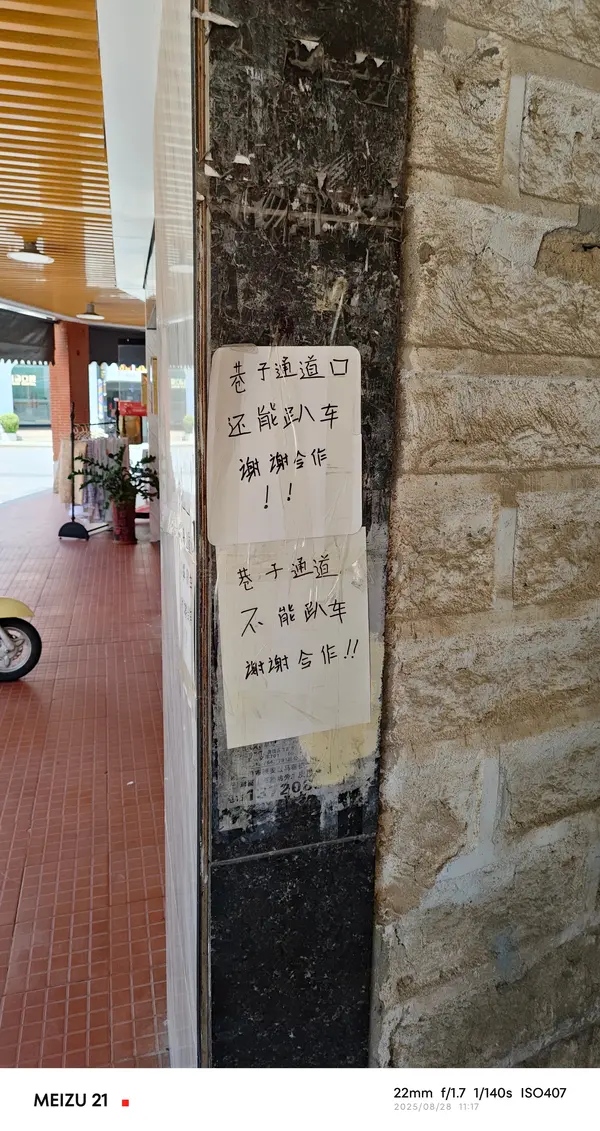 巷子通道口
还能趴车
谢谢合作
！！
巷子通道
不能趴车
谢谢合作!!
206
MEIZU 21
22mm f/1.7 1/140s ISO407
2025/08/28 11:17